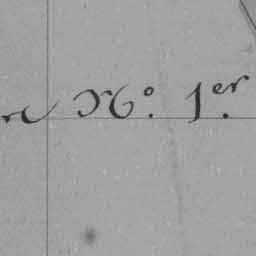 N.º 1.er